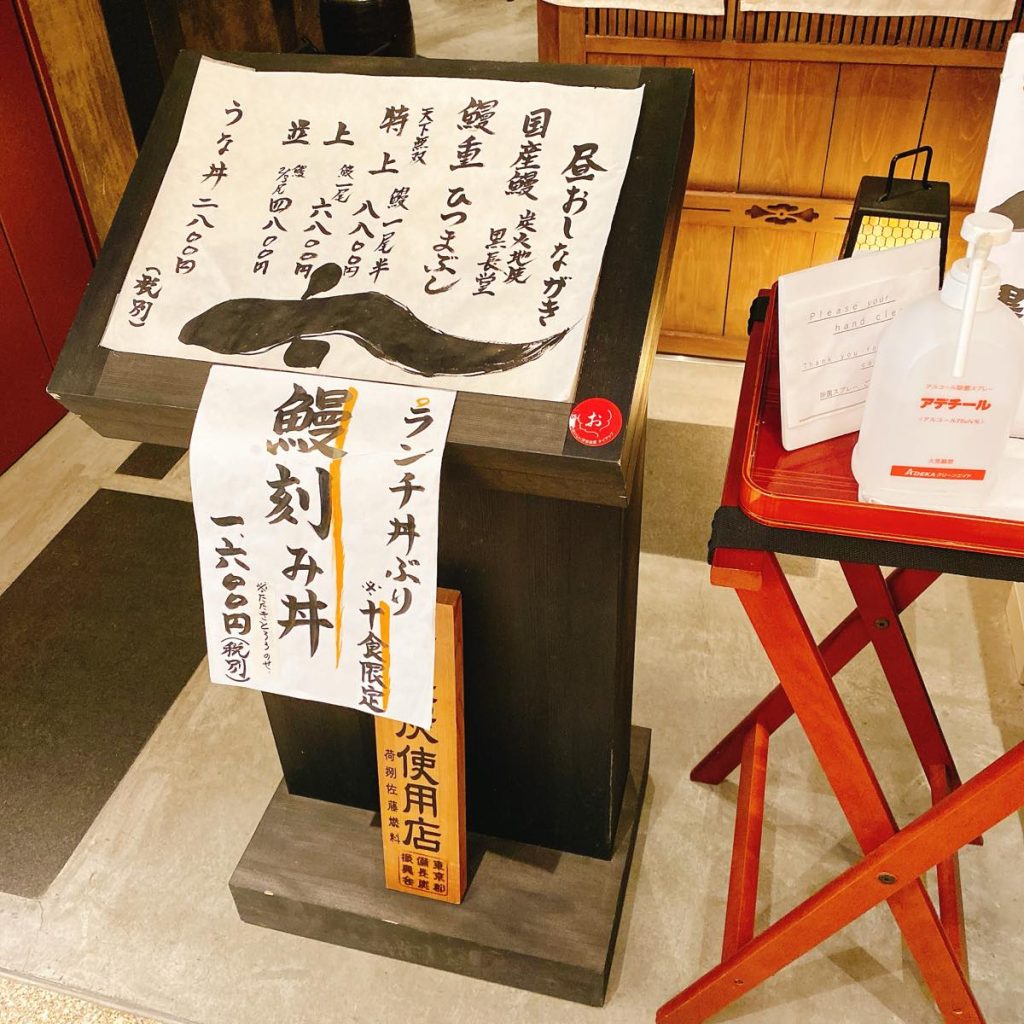 昼おしながき
国産鰻 炭火地焼
黒長堂
鰻重 ひつまぶし
天下無双
特上 鰻一尾半
八八〇〇円
上 鰻一尾
六八〇〇円
並 鰻
四八〇〇円
うな丼 二八〇〇円
(税別)
ランチ丼ぶり
※十食限定
鰻刻み丼
※たたきとろろのせ
一、六〇〇円(税別)
炭使用店
荷捌佐藤燃料
東京都
備長炭
振興会
お
Please your
hand cle
Thank you fo
アルコール除菌スプレー
アデチール
<アルコール75vol%>
火気厳禁
ADEKAクリーンエイド